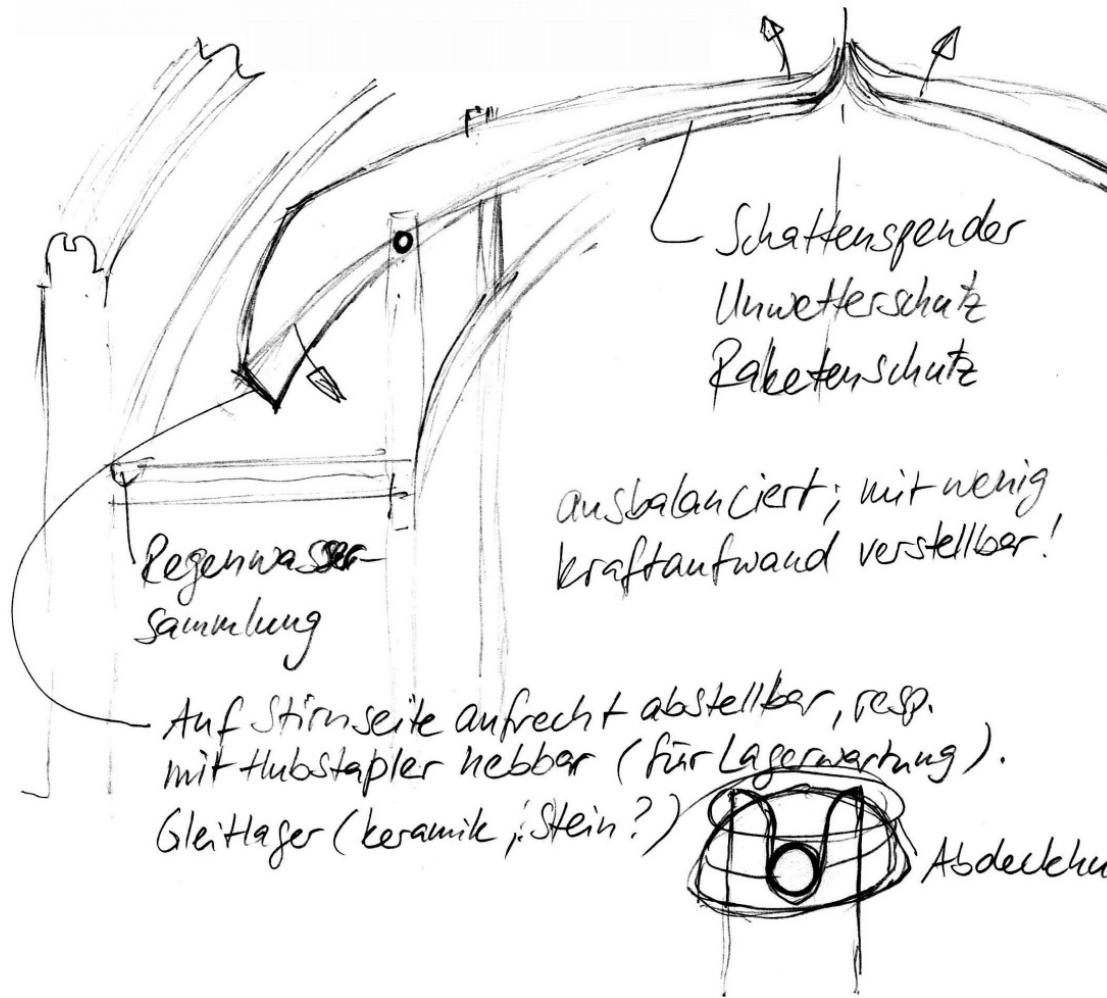 Schattenspender
Unwetterschutz
Raketenschutz
ausbalanciert; mit wenig
kraftaufwand verstellbar!
Regenwasser-
sammlung
Auf Stirnseite aufrecht abstellbar, resp.
mit Hubstapler hebbar (für Lagerwartung).
Gleitlager (keramik; Stein?)